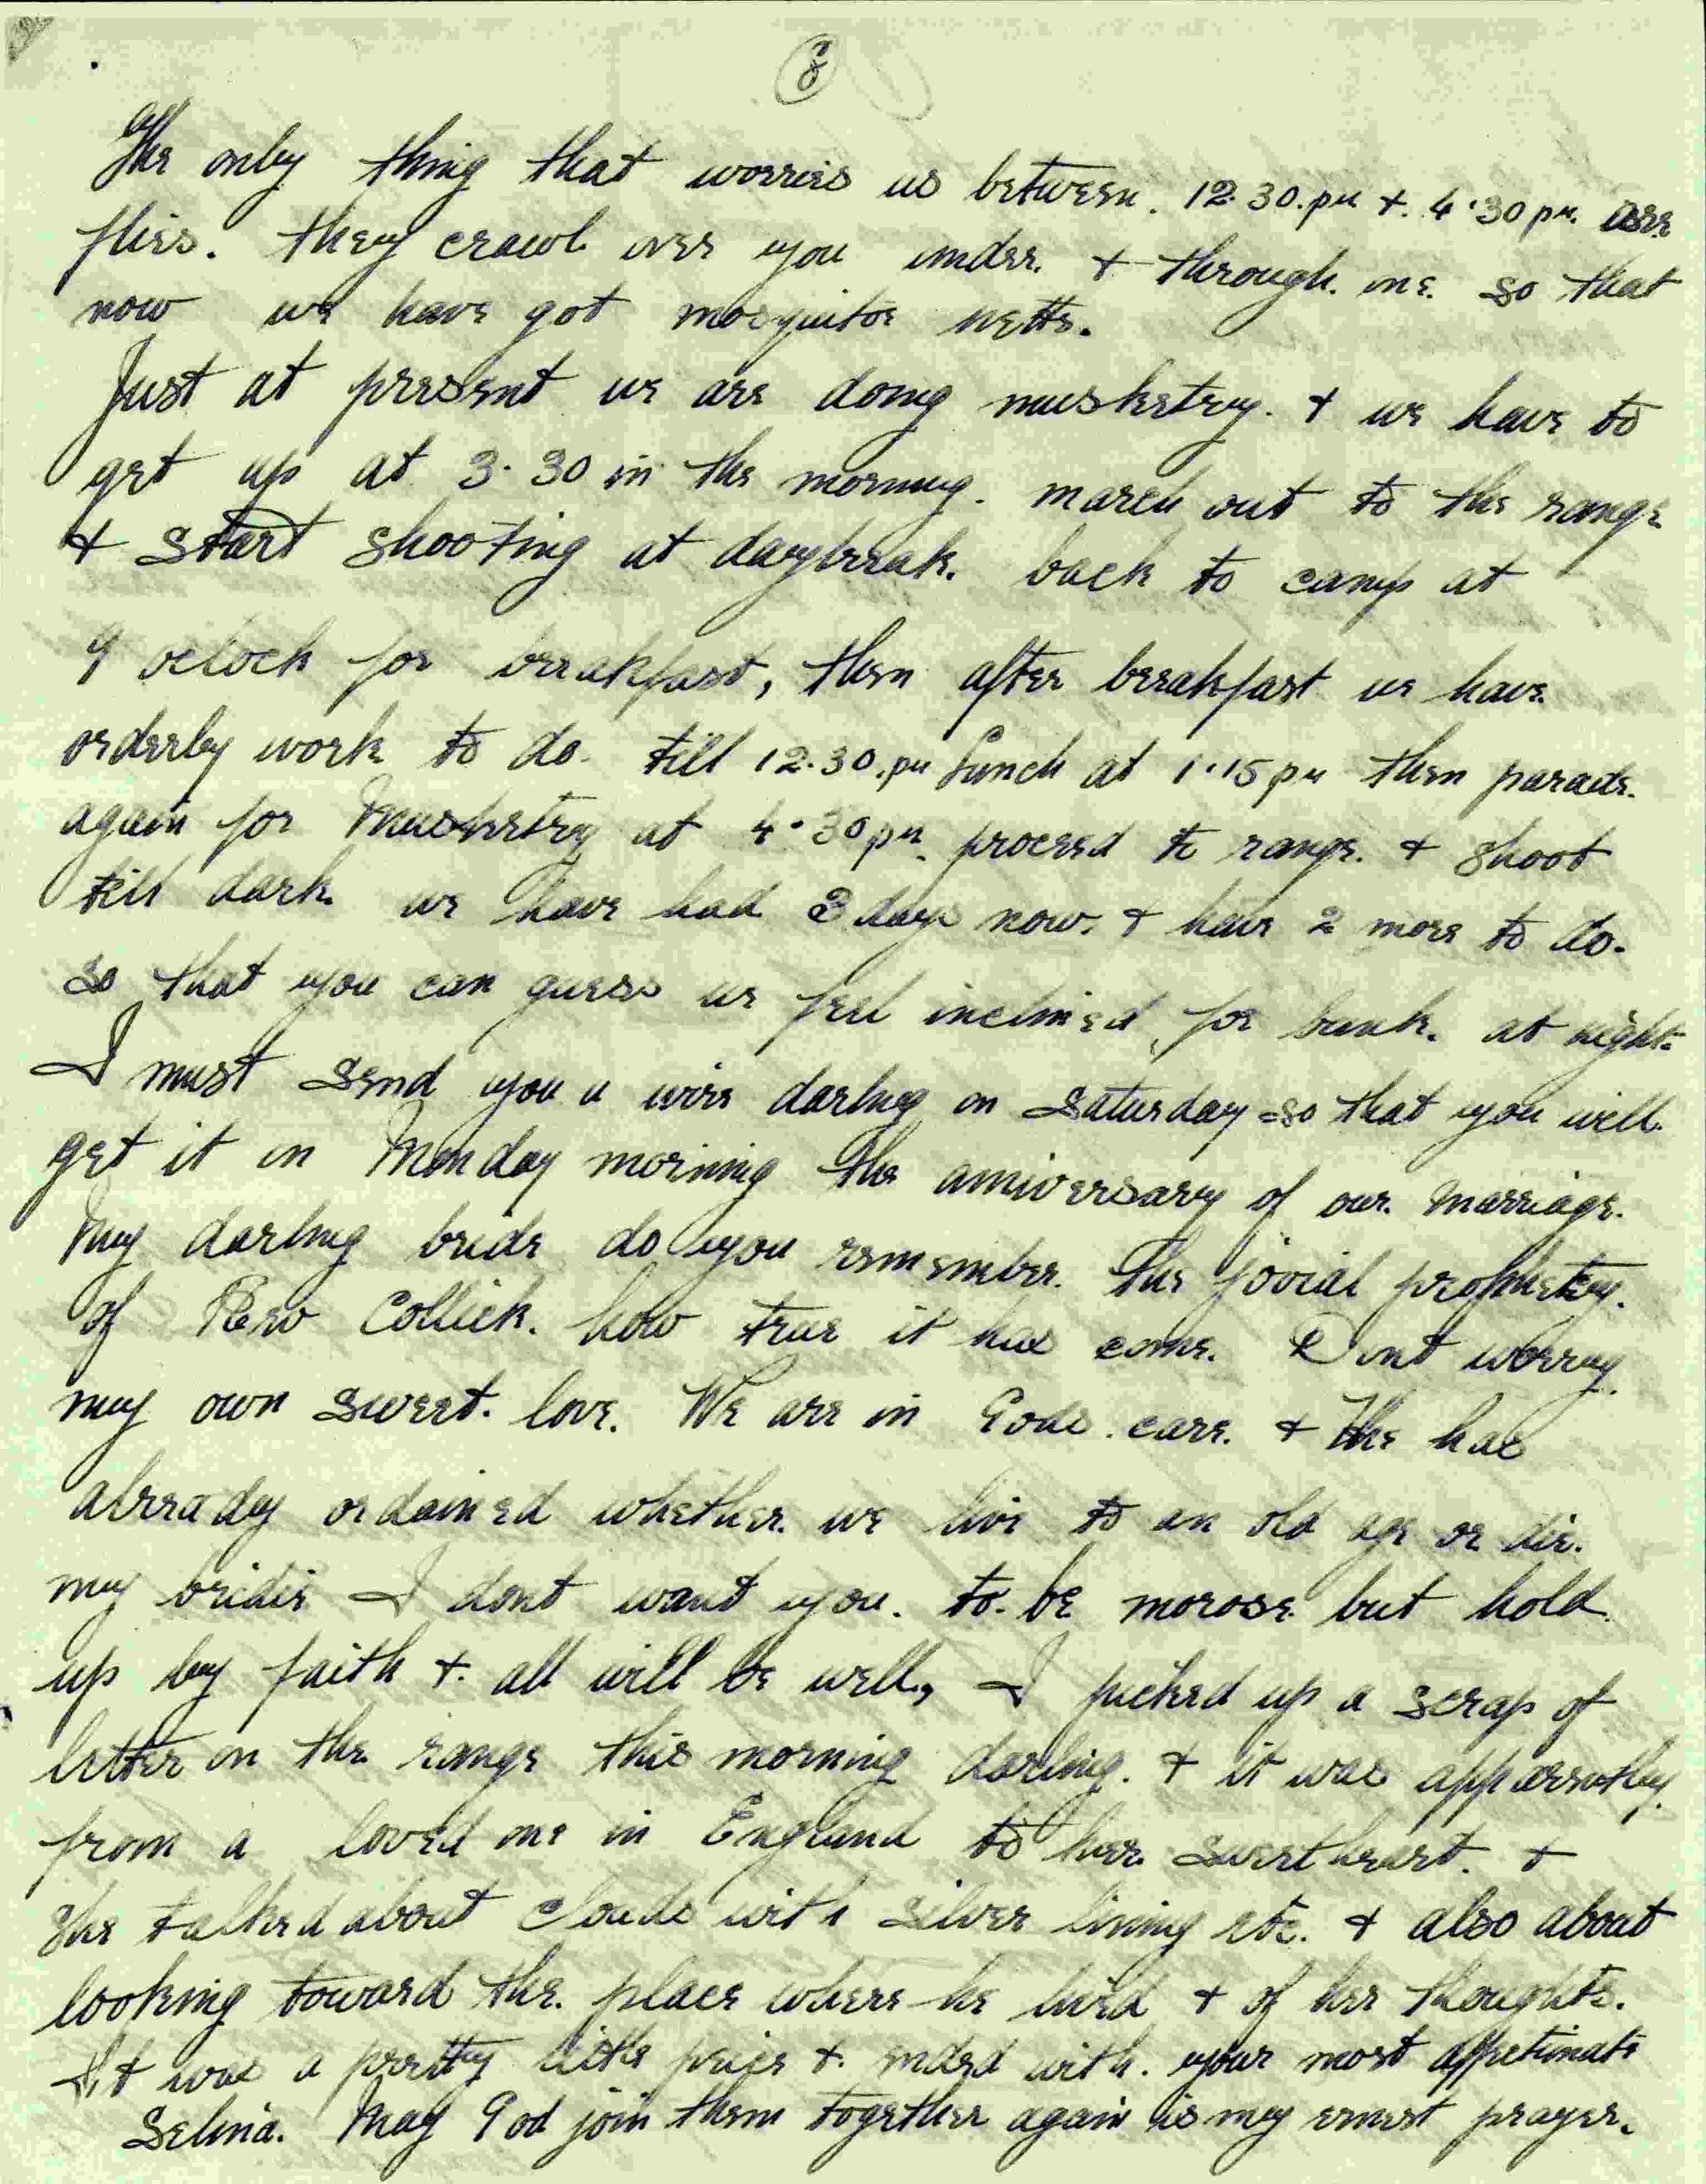 8
The only thing that worries us between. 12.30.pm +. 4.30 pm. are
flies. They crawl over you under. + through. one. so that
now we have got mosquitoe netts.
Just at present we are doing musketry. + we have to
get up at 3.30 in the morning. march out to the range
+ start shooting at daybreak. back to camp at
9 oclock for breakfast, then after breakfast we have
orderly work to do. till 12.30.pm Lunch at 1.15 pm then parade.
again for Musketry at 4.30 pm. proceed to range. + shoot
till dark. we have had 3 days now. + have 2 more to do.
so that you can guess we feel inclined for bunk. at night.
I must send you a wire darling on Saturday so that you will.
get it on Monday morning the anniversary of our. Marriage.
My darling bride do you remember. the jovial prophetsy.
of Rev Collick. how true it has come. Dont worry.
my own sweet. love. We are in Gods. care. + He has
already ordained whether. we live to an old age or die.
my bridie I dont want you. to. be morose but hold.
up by faith +. all will be well, I picked up a scrap of
letter on the range this morning darling. + it was apparently.
from a loved one in England to her sweetheart. +
she talked about clouds with silver lining etc. + also about
looking toward the. place where he lived + of her thoughts.
It was a pretty little peice +. ended with. your most affetinate
Selina. May God join them together again is my ernest prayer.